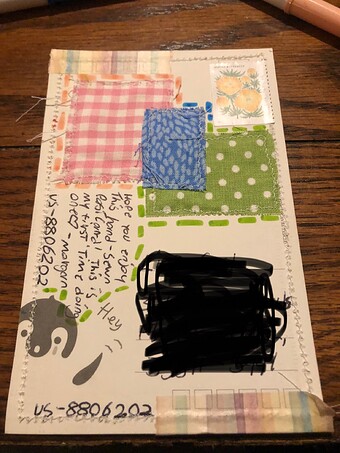 Hey
Hope you enjoy
this hand-sewn
postcard. This is
my first time doing
one:) -Morgan
US-8806202
US-8806202